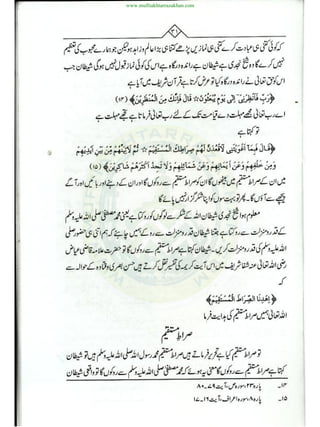 www.muftiakhtarrazakhan.com
۳۱
کہ کوئی کتنی ہی عبادت کرے کتنی ہی نمازیں پڑھے کتنا ہی بڑا عالم و زاہد ہو لیکن جو ہمارے محبوب کی تعظیم
نہ کرے گا وہ شیخ نجدی ہے شیطان ہے راندہ درگاہ ہے اس کی کوئی نماز قبول نہیں ہوگی شیطان جب
اس کو حق تعالیٰ نے راندہ درگاہ کیا تو عرض کرتا ہے قرآن شریف میں آیا ہے
﴿رَبِّ فَأَنْظِرْنِي إِلَى يَوْمِ يُبْعَثُونَ☆ قَالَ فَإِنَّكَ مِنَ الْمُنْظَرِينَ﴾ (۱۴)
اے رب تعالیٰ مجھے مہلت دے قیامت تک کے لئے رب تعالیٰ فرماتا ہے تجھے مہلت ہے
تو کہتا ہے
﴿قَالَ فَبِمَا أَغْوَيْتَنِي لَأَقْعُدَنَّ لَهُمْ صِرَاطَكَ الْمُسْتَقِيمَ☆ ثُمَّ لَآتِيَنَّهُمْ مِنْ بَيْنِ أَيْدِيهِمْ
وَمِنْ خَلْفِهِمْ وَعَنْ أَيْمَانِهِمْ وَعَنْ شَمَائِلِهِمْ وَلَا تَجِدُ أَكْثَرَهُمْ شَاكِرِينَ﴾ (۱۵)
میں ان کے صراط مستقیم میں بیٹھوں گا ان کو صراط مستقیم سے روکوں گا اور ان کے دہنے اور بائیں اور آگے
پیچھے سے آؤں گا۔ پھر تو بہت سوں کو اپنا شکر گزار نہیں پائے گا
معلوم ہوا شیخ نجدی شیطان اللہ کے شکر سے لوگوں کو روکتا ہے یعنی محمد مصطفیٰ صلی اللہ علیہ وسلم
کے قدر و منزلت سے روکتا ہے جتنا شیطان قدر و منزلت سے روکے ہمیں چاہئے کہ ہم اتنی ہی حضور صلی
اللہ علیہ وسلم کی قدر و منزلت کریں۔ شیطان کہتا ہے صراط مستقیم سے روکوں گا تو حضرت علامہ قاضی عیاض
رضی اللہ تعالیٰ عنہ شفا شریف میں اس آیت کریمہ کی تفسیر نقل کرتے ہیں حسن بصری و قتادہ کے حوالہ سے
کہ
﴿اِهْدِنَا الصِّرَاطَ الْمُسْتَقِيمَ﴾
اللہ تعالیٰ ہمیں صراط مستقیم کی ہدایت فرما
صراط مستقیم
تو صراط مستقیم کیا ہے تفسیر فرماتے ہیں صراط مستقیم محمد رسول اللہ صلی اللہ علیہ وسلم ہیں تو شیطان
کہتا ہے صراط مستقیم سے روکوں گا معنی یہ ہوئے کہ محمد مصطفیٰ صلی اللہ علیہ وسلم سے روکوں گا تو واقعی شیطان
۱۴۔ پارہ ۲۳، سورہ ص، آیت ۷۹۔۸۰
۱۵۔ پارہ ۸، سورہ اعراف، آیت ۱۶۔۱۷